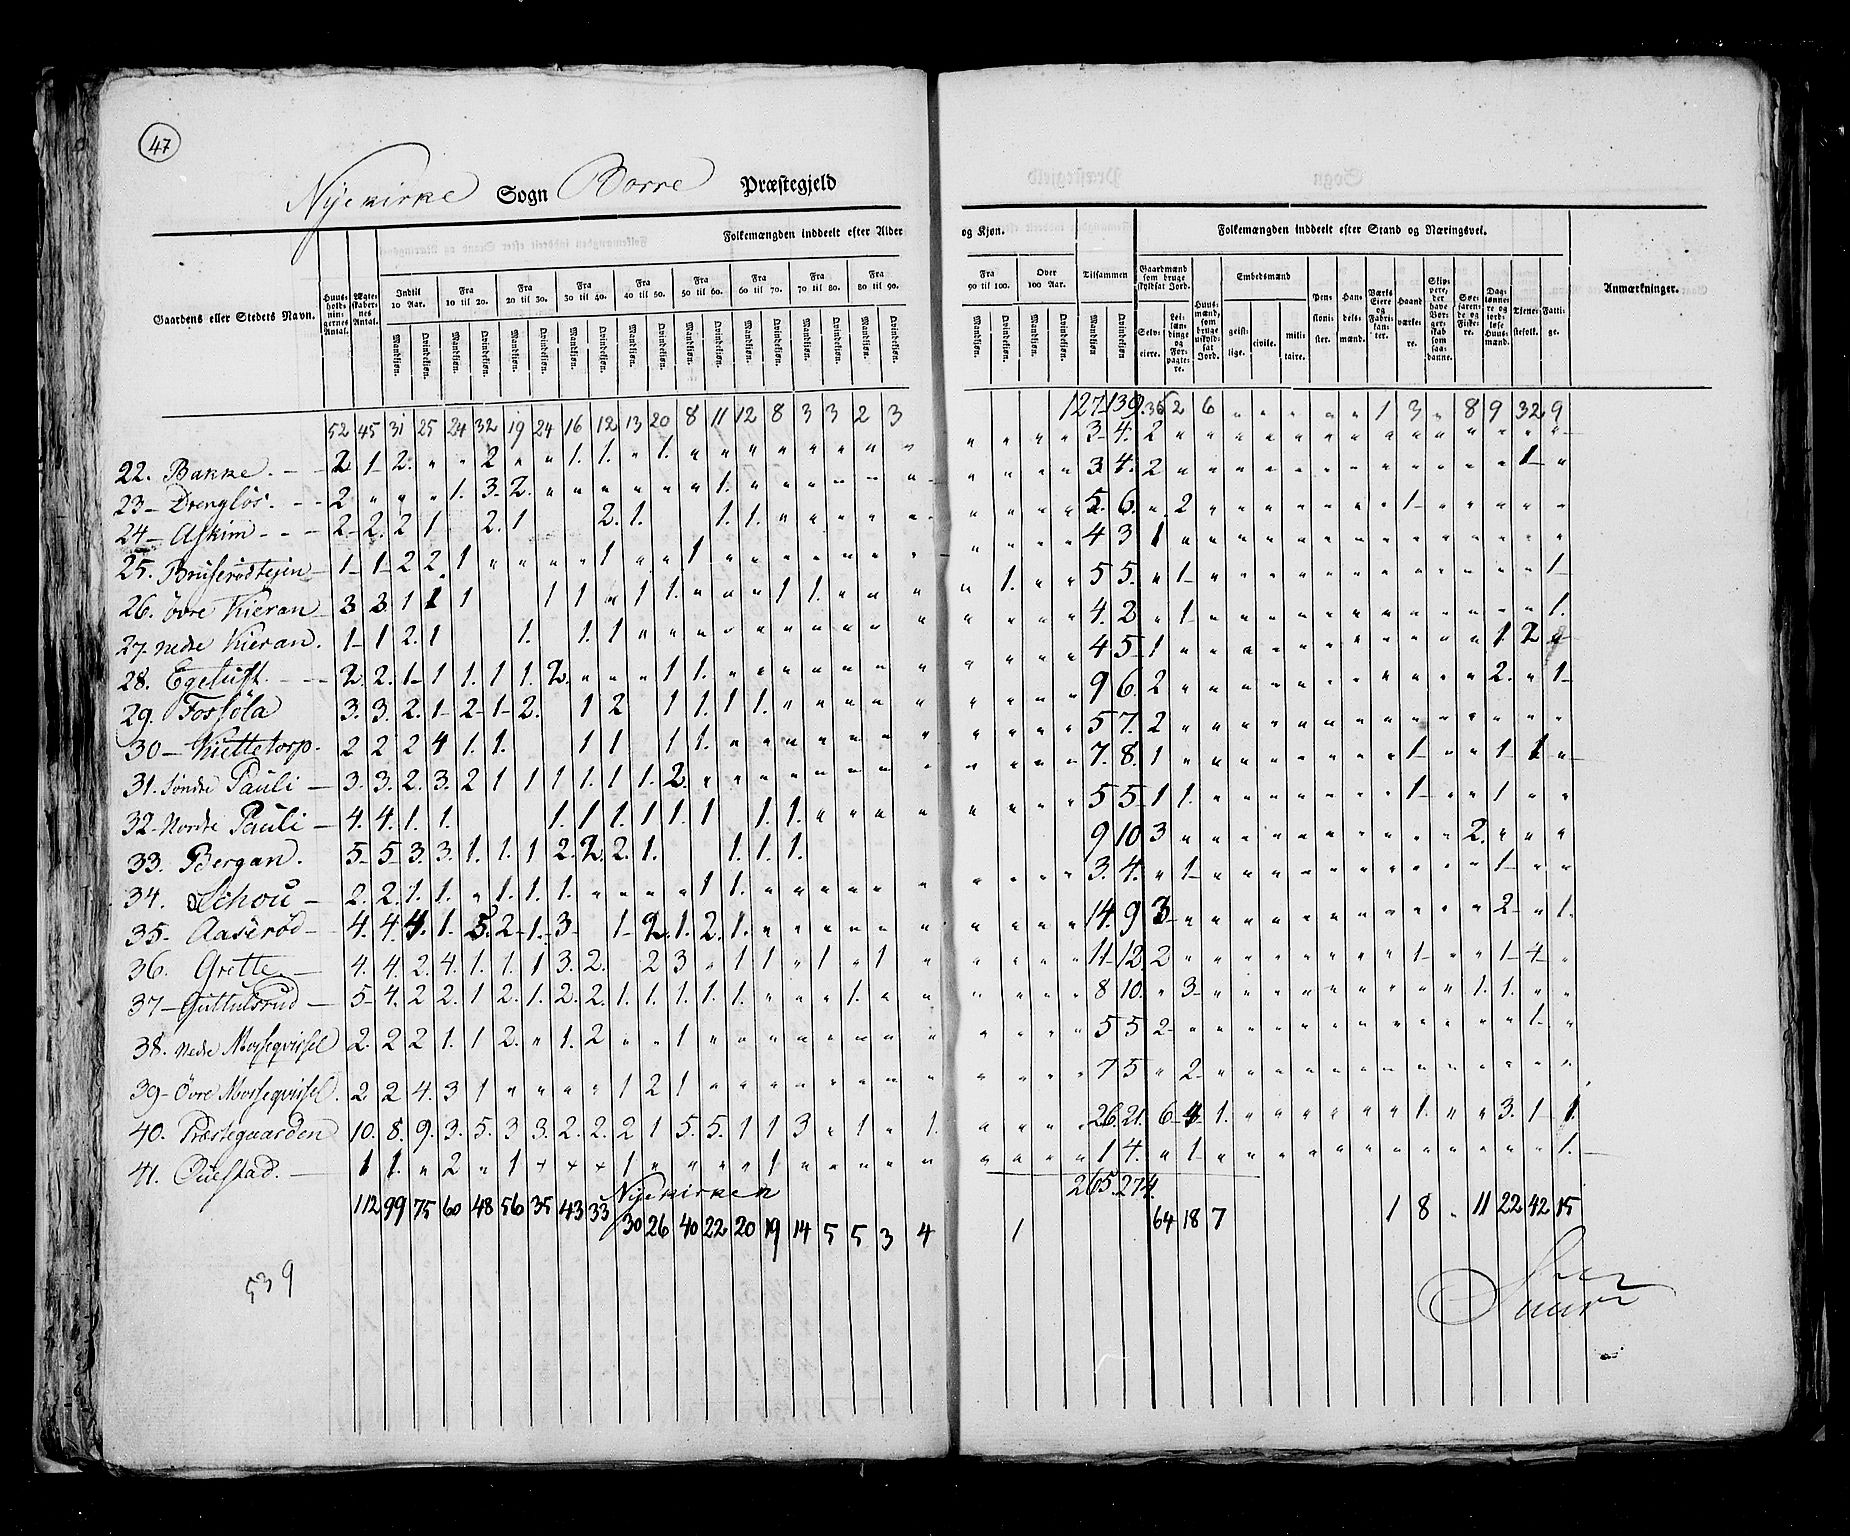 47
Nyekirke Sogn Borre Præstegjeld
Gaardens eller Stedets Navn. Huusholdningernes Antal. Ægteskabernes Antal. Folkemængden inddeelt efter Alder og Kjøn. Tilsammen Folkemængden inddeelt efter Stand og Næringsvei. Anmærkninger.
Indtil 10 Aar. Fra 10 til 20. Fra 20 til 30. Fra 30 til 40. Fra 40 til 50. Fra 50 til 60. Fra 60 til 70. Fra 70 til 80. Fra 80 til 90. Fra 90 til 100. Over 100 Aar.
Mandkjøn. Qvindekjøn.
Gaardmænd som bruge skyldsat Jord. Selveiere. Leilændinge og Forpagtere. Huusmænd, som bruge uskyldsat Jord. Embedsmænd geistlige. civile. militaire. Pensionister. Handelsmænd. Værks Eiere og Fabrikanter. Haandværkere. Skippere, der have Borgerskab som saadanne. Søefarende og Fiskere. Daglønnere og jordløse Huusmænd. Tjenestefolk. Fattige.
52 45 31 25 24 32 19 24 16 12 13 20 8 11 12 8 3 3 2 3 127 139 36 2 6 " " " " " 1 3 " 8 9 32 9
22. Bakke. 2 1 2. " " 2 " " 1. 1. " 1. " " " " " " " " 3 4. 2
23 Drengløs. 2 " " " 1. 3. 2. " " " " " " 1. " " " " " " 3 4. 2 1
24 Askim 2 2. 2 1 2. 1 2. 1. 1. 1. " " " " " 5. 6. " 2 1
25. Bruserødtejen 1 1 2 2. 1 " " " " 1 " " 1 " " " " " " " 4 3 1
26. Øvre Kieran 3 3 1 1 1 1 1 " 1 1. " " " 1 1. " " " 1. 5 5. " 1 1
27. Nedre Kieran. 1 1 2. 1 1. 1. 1 " " " " " " " " " 4. 2 " 1 1.
28. Egetuft. 2. 2. 1 1 1. 1 1. 2. " " " 1 1. " " " " " 4 5 1 1. 2
29. Fossøla 3. 3. 2. 1 2 1 2. 1 2 1 1. 1 1. " " " " 9 6. 2 2. " 1
30 Kiettetorp. 2 2 2 4 1. 1. 1 1 1 1. " " " " " 5 7. 2
31. Søndre Pauli 3. 3. 2. 3. 2 1 1 1 1. 1 1. 2. " " " " " " 7. 8. 1 1 1 1
32 Nordre Pauli 4. 4. 1. 1. 1. 1 1. 1 1 1 1. 1. " " " 5 5 1 1. 1 1
33. Bergan. 5 5 3. 3. 1. 1. 1 2. 2. 2. 1. 1. 1. 1. 9 10 3 2.
34. Schou 2. 2. 1. 1. " 1. 1. 1. " " " " 1 1. " " " " 3. 4. " 1 1
35 Aaserød 4. 4. 4. 1. 5. 2 1. 3 1 2. 1. 2. 1. " " " " 14. 9 3 2 " 1.
36. Grette 4. 4. 2. 4. 1. 1. 1 3. 2. 2 3 " 1 1 " 1 " 1 11 12 2 1 1 4
37 Guttulsrud 5 4. 2 2. 1 2. 1. 2. 2. 1. 1. 1. 1. 1. " " " 1. " " 8 10. " 3 1. 1.
38. Nedre Morseqvissel 2. 2 2 1. 1 2. " 1. 2 " " 1 " " " " " " " " 5 5 2 1
39 Øvre Morseqvissel. 2 2 4. 3 1 " " " " 1 2 1 " " " " " " " " 7 5 " 2
40. Præstegaarden 10. 8. 9. 3. 5. 3 3. 2. 2. 2 1 5. 5. 1 1 3 " 1 " 1. 26. 21. 6 4 1. 1. 3. 1 1
41. Questad. 1 1. " 2 " 1 + + + 1 " " " " 1 " " " " " 1 4. " 1 1.
Nyekirken 265. 274.
112 99 75 60 48 56 35 43 33 30 26 40 22 20 19 14 5 5 3 4 1 64 18 7 1 8 " 11 22 42 15
539